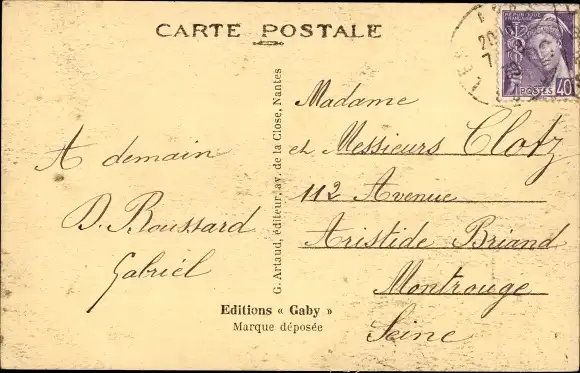 CARTE POSTALE
RÉPUBLIQUE
FRANÇAISE
POSTES 40
A demain
D. Roussard
Gabriel
G. Artaud, éditeur, av. de la Close, Nantes
Madame
et Messieurs Clotz
112 Avenue
Aristide Briand
Montrouge
Seine
Editions « Gaby »
Marque déposée